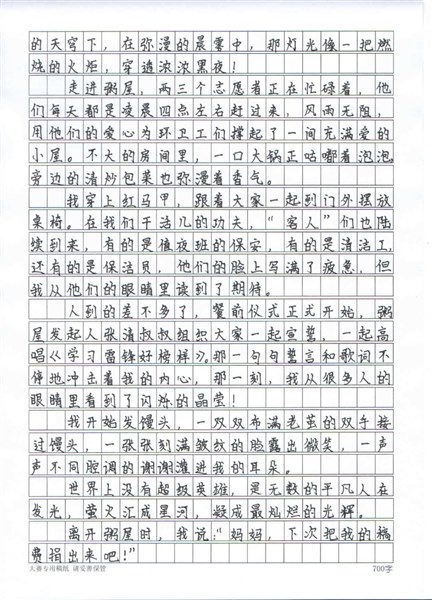 的天穹下，在弥漫的晨雾中，那灯光像一把燃
烧的火炬，穿透浓浓黑夜！
走进粥屋，两三个志愿者正在忙碌着，他
们每天都是凌晨四点左右赶过来，风雨无阻，
用他们的爱心为环卫工们撑起了一间充满爱的
小屋。不大的房间里，一口大锅正咕嘟着泡泡，
旁边的清炒包菜也弥漫着香气。
我穿上红马甲，跟着大家一起到门外摆放
桌椅。在我们干活儿的功夫，“客人”们也陆
续到来，有的是值夜班的保安，有的是清洁工，
还有的是保洁员，他们的脸上写满了疲惫，但
我从他们的眼睛里读到了期待。
人到的差不多了，餐前仪式正式开始，粥
屋发起人张清叔叔组织大家一起宣誓，一起高
唱《学习雷锋好榜样》。那一句句誓言和歌词不
停地冲击着我的内心，那一刻，我从很多人的
眼睛里看到了闪烁的晶莹！
我开始发馒头，一双双布满老茧的双手接
过馒头，一张张刻满皱纹的脸露出微笑，一声
声不同腔调的谢谢灌进我的耳朵。
世界上没有超级英雄，是无数的平凡人在
发光，萤火汇成星河，凝成最灿烂的光辉。
离开粥屋时，我说：“妈妈，下次把我的稿
费捐出来吧！”
大赛专用稿纸 请爱善保管 700字